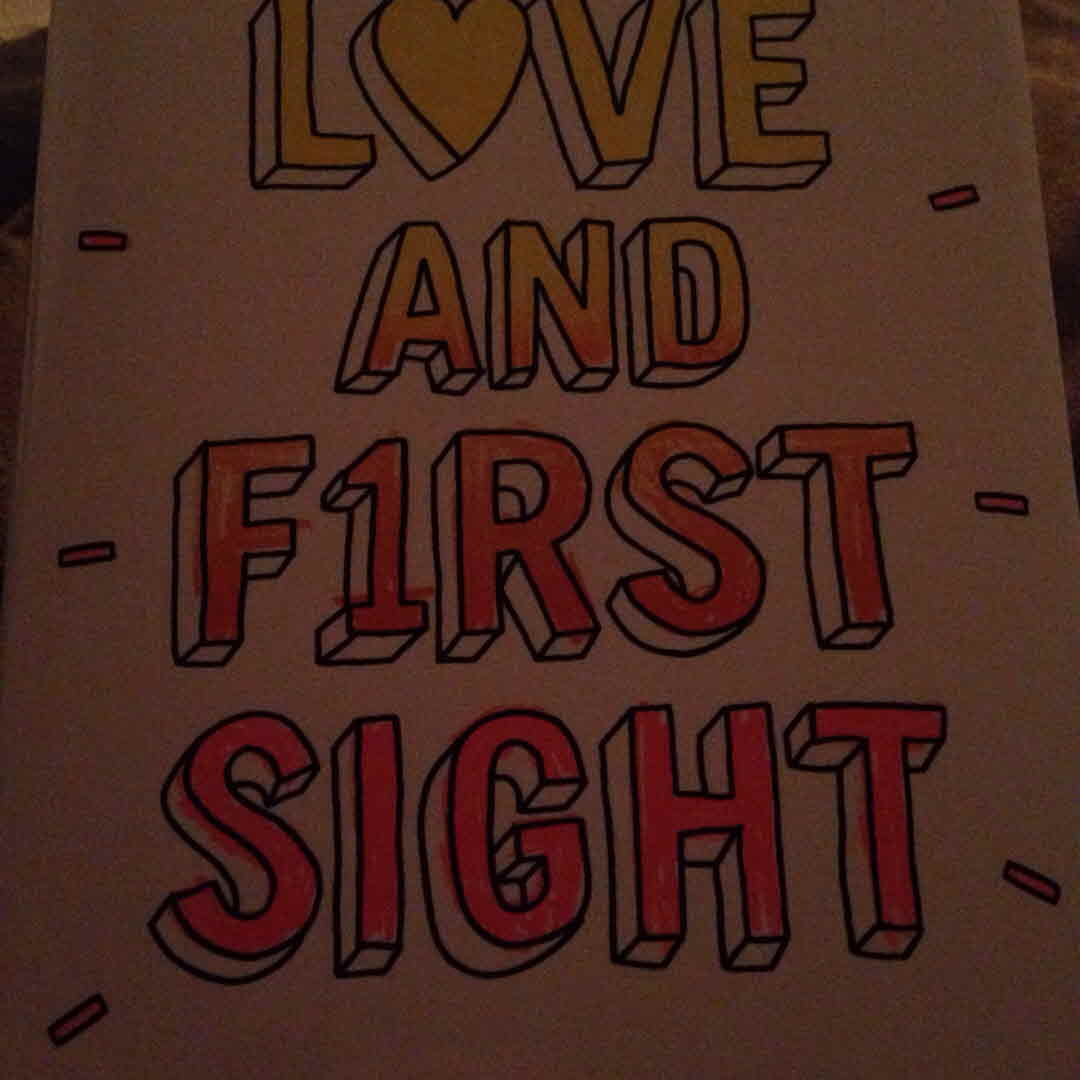 L♥VE
AND
F1RST
SIGHT